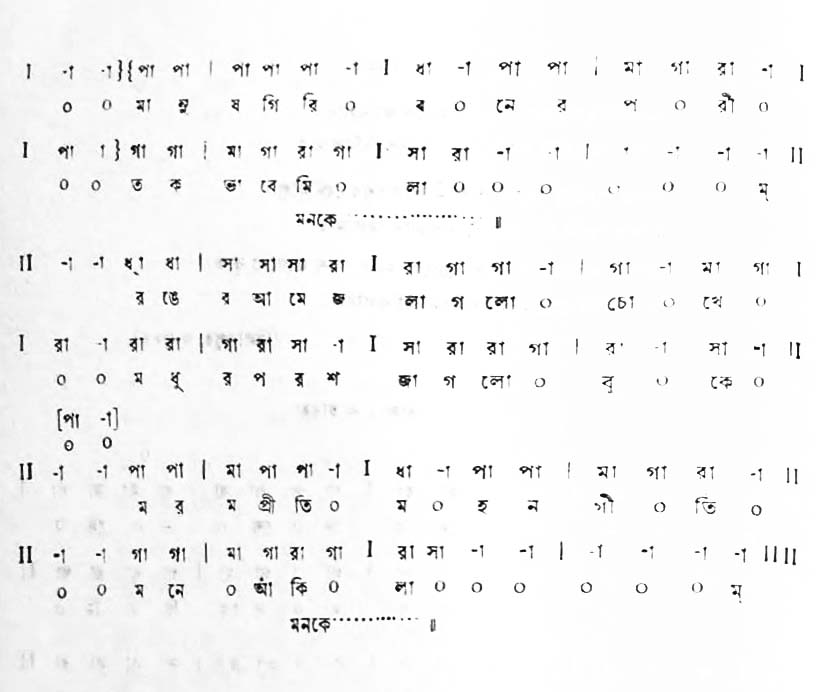 I -া -া}{পা পা | পা পা পা -া I ধা -া পা পা | মা গা রা -া I
০ ০ মা নু ষ গি রি ০ ব ০ নে র প ০ রী ০
I পা া} গা গা | মা গা রা গা I সা রা -া -া | -া -া -া -া II
০ ০ ত ক ভা বে মি ০ লা ০ ০ ০ ০ ০ ০ ম্
মনকে ·············· ॥
II -া -া ধ্া ধা | সা সা সা রা I রা গা গা -া | গা -া মা গা I
র ঙে র আ মে জ লা গ লো ০ চো ০ খে ০
I রা -া রা রা | গা রা সা -া I সা রা রা গা | রা -া সা -া II
০ ০ ম ধু র প র শ জা গ লো ০ বু ০ কে ০
[পা -া]
০ ০
II -া -া পা পা | মা পা পা -া I ধা -া পা পা | মা গা রা -া II
ম র ম প্রী তি ০ ম ০ হ ন গী ০ তি ০
II -া -া গা গা | মা গা রা গা I রা সা -া -া | -া -া -া -া IIII
০ ০ ম নে ০ আঁ কি ০ লা ০ ০ ০ ০ ০ ০ ম্
মনকে ·············· ॥